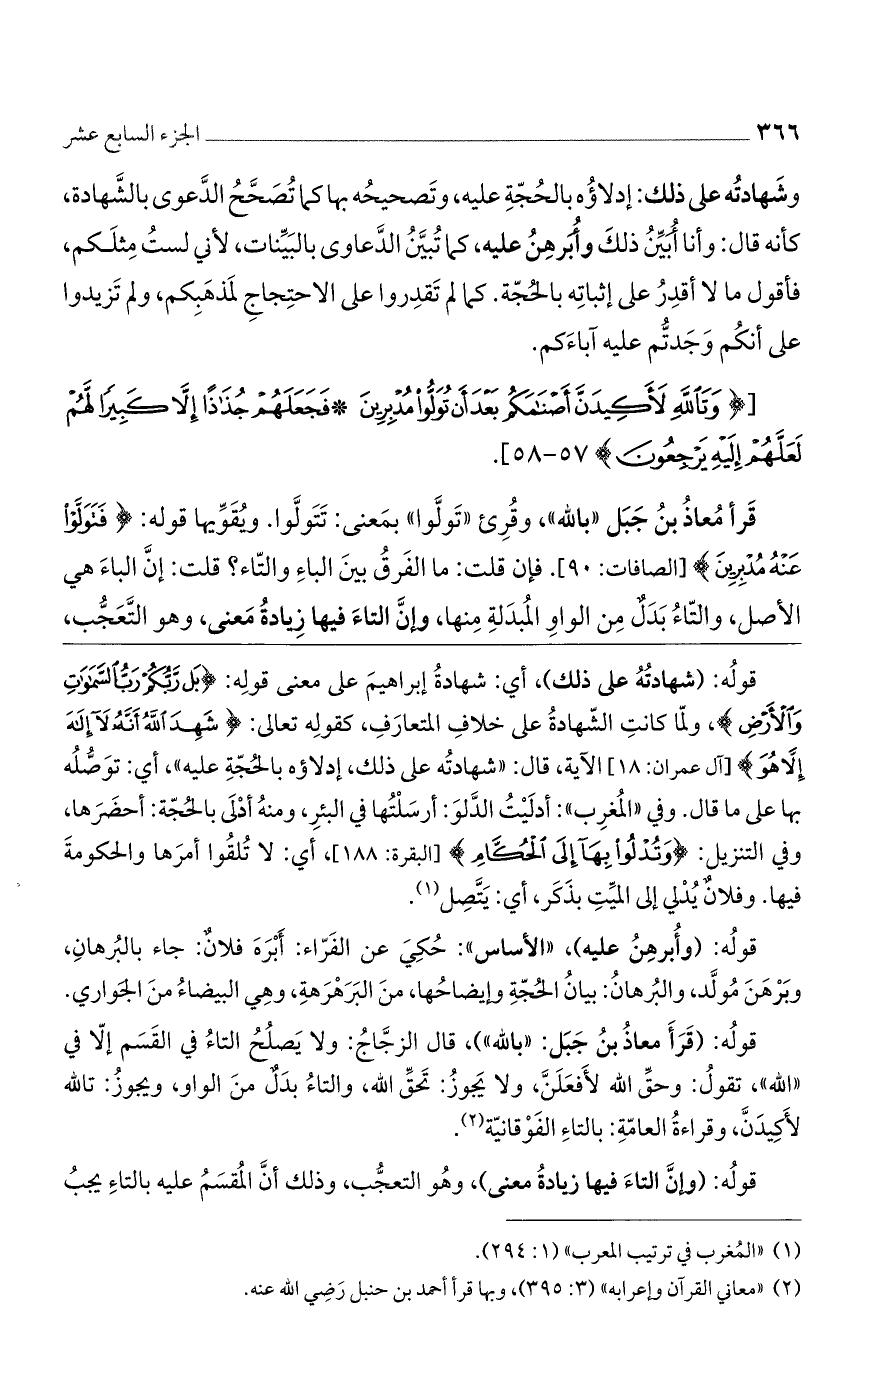 ٣٦٦ ـــــــ الجزء السابع عشر
وشَهادتُه على ذلك: إدلاؤُه بالحُجّةِ عليه، وتَصحيحُه بها كما تُصَحَّحُ الدَّعوى بالشَّهادة،
كأنه قال: وأنا أُبيِّنُ ذلكَ وأُبَرهِنُ عليه، كما تُبيَّنُ الدَّعاوى بالبَيِّنات، لأني لستُ مِثلَكم،
فأقول ما لا أقدِرُ على إثباتِه بالحُجّة. كما لم تَقدِروا على الاحتِجاجِ لمَذهَبِكم، ولم تَزيدوا
على أنكُم وَجَدتُّم عليه آباءَكم.
[﴿ وَتَٱللَّهِ لَأَكِيدَنَّ أَصْنَٰمَكُم بَعْدَ أَن تُوَلُّوا۟ مُدْبِرِينَ * فَجَعَلَهُمْ جُذَٰذًا إِلَّا كَبِيرًا لَّهُمْ
لَعَلَّهُمْ إِلَيْهِ يَرْجِعُونَ ﴾ ٥٧-٥٨].
قَرأ مُعاذُ بنُ جَبَل «بالله»، وقُرِئ «تَولَّوا» بمَعنى: تَتَولَّوا. ويُقَوِّيها قوله: ﴿ فَتَوَلَّوْا۟
عَنْهُ مُدْبِرِينَ ﴾ [الصافات: ٩٠]. فإن قلت: ما الفَرقُ بينَ الباءِ والتّاء؟ قلت: إنَّ الباءَ هي
الأصل، والتّاءُ بَدَلٌ مِن الواوِ المُبدَلةِ منها، وإنَّ التاءَ فيها زِيادةُ مَعنى، وهو التَّعَجُّب،
قولُه: (شهادتُهُ على ذلك)، أي: شهادةُ إبراهيمَ على معنى قولِه: ﴿بَل رَّبُّكُمْ رَبُّ ٱلسَّمَٰوَٰتِ
وَٱلْأَرْضِ ﴾، ولمّا كانتِ الشّهادةُ على خلافِ المتعارَفِ، كقولِه تعالى: ﴿ شَهِدَ ٱللَّهُ أَنَّهُۥ لَآ إِلَٰهَ
إِلَّا هُوَ ﴾ [آل عمران: ١٨] الآية، قال: «شهادتُه على ذلك، إدلاؤه بالحُجّةِ عليه»، أي: توَصُّلُه
بها على ما قال. وفي «المُغرِب»: أدلَيْتُ الدلوَ: أرسَلْتُها في البئرِ، ومنهُ أدْلَى بالحُجّة: أحضَرَها،
وفي التنزيل: ﴿وَتُدْلُوا۟ بِهَآ إِلَى ٱلْحُكَّامِ ﴾ [البقرة: ١٨٨]، أي: لا تُلقُوا أمرَها والحكومةَ
فيها. وفلانٌ يُدْلي إلى الميِّتِ بذَكَر، أي: يَتَّصِل(١).
قولُه: (وأُبرهِنُ عليه)، «الأساس»: حُكِيَ عن الفَرّاء: أَبْرَهَ فلانٌ: جاء بالبُرهانِ،
وبَرْهَنَ مُولَّد، والبُرهانُ: بيانُ الحُجّةِ وإيضاحُها، منَ البَرَهْرَهةِ، وهِي البيضاءُ منَ الجَواري.
قولُه: (قَرَأَ معاذُ بنُ جَبَل: «بالله»)، قال الزجَّاجُ: ولا يَصلُحُ التاءُ في القَسَم إلّا في
«الله»، تقولُ: وحقِّ الله لأَفعَلَنَّ، ولا يَجوزُ: تَحقِّ الله، والتاءُ بدَلٌ منَ الواو، ويجوزُ: تالله
لأكِيدَنَّ، وقراءةُ العامّةِ: بالتاءِ الفَوْقانيّة(٢).
قولُه: (وإنَّ التاءَ فيها زيادةُ معنى)، وهُو التعجُّب، وذلك أنَّ المُقسَمُ عليه بالتاءِ يجبُ
(١) «المُغرب في ترتيب المعرب» (١: ٢٩٤).
(٢) «معاني القرآن وإعرابه» (٣: ٣٩٥)، وبها قرأ أحمد بن حنبل رَضِي الله عنه.